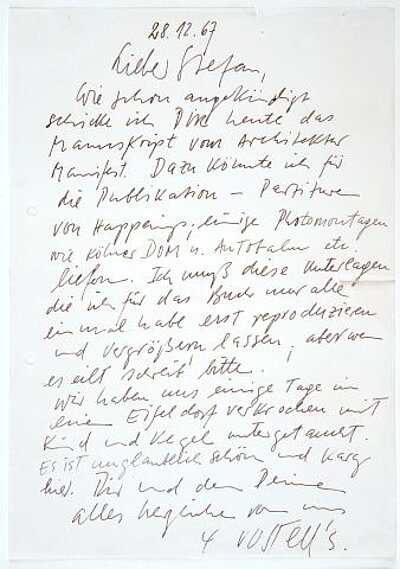 28.12.67
Lieber Stefan,
Wie schon angekündigt
schicke ich Dir heute das
Manuskript vom Architektur
Manifest. Dazu könnte ich für
die Publikation – Partituren
von Happenings, einige Photomontagen
wie Kölner Dom u. Autobahn etc.
liefern. Ich muß diese Unterlagen
die ich für das Buch nur alle
einmal habe erst reproduzieren
und vergrößern lassen, aber wenn
es eilt schreib bitte.
Wir haben uns einige Tage in
einem Eifeldorf verkrochen mit
Kind und Kegel untergetaucht.
Es ist unglaublich schön und karg
hier. Dir und den Deinen
alles herzliche von uns
4 Vostell's.